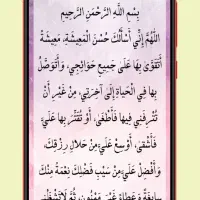 بِسْمِ اللَّهِ الرَّحْمَنِ الرَّحِيمِ
اللَّهُمَّ إِنِّي أَسْأَلُكَ حُسْنَ الْمَعِيشَةِ، مَعِيشَةً
أَتَقَوَّى بِهَا عَلَى جَمِيعِ حَوَائِجِي، وَأَتَوَصَّلُ
بِهَا فِي الْحَيَاةِ إِلَى آخِرَتِي، مِنْ غَيْرِ أَنْ
تُتْرِفَنِي فِيهَا فَأَطْغَى، أَوْ تُقَتِّرَ بِهَا عَلَيَّ
فَأَشْقَى، أَوْسِعْ عَلَيَّ مِنْ حَلَالِ رِزْقِكَ،
وَأَفْضِلْ عَلَيَّ مِنْ سَيْبِ فَضْلِكَ نِعْمَةً مِنْكَ
سَابِغَةً وَعَطَاءً غَيْرَ مَمْنُونٍ، ثُمَّ لَا تَشْغَلْنِي